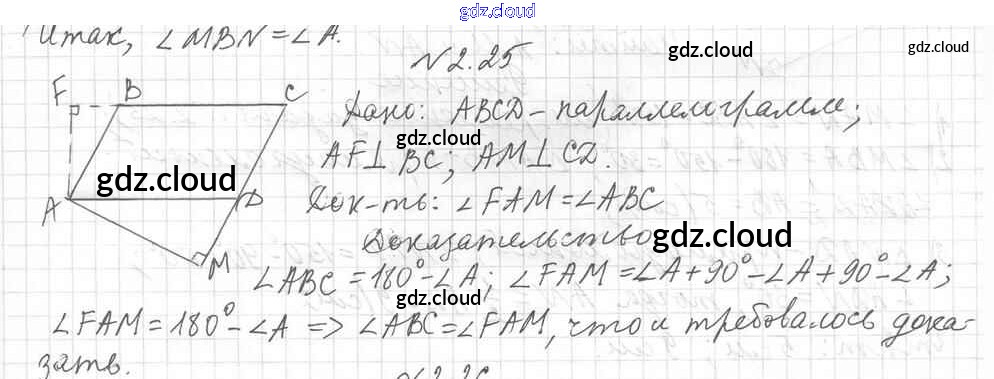 gdz.cloud
Итак, ∠MBN = ∠A.
№2.25
gdz.cloud
gdz.cloud
F B C
Дано: ABCD – параллелограмм;
gdz.cloud
AF⊥BC; AM⊥CD.
gdz.cloud
A D
Док-ть: ∠FAM = ∠ABC
Доказательство
gdz.cloud
M
∠ABC = 180° - ∠A; ∠FAM = ∠A + 90° - ∠A + 90° - ∠A;
gdz.cloud
∠FAM = 180° - ∠A => ∠ABC = ∠FAM, что и требовалось дока-
зать.
№2.26